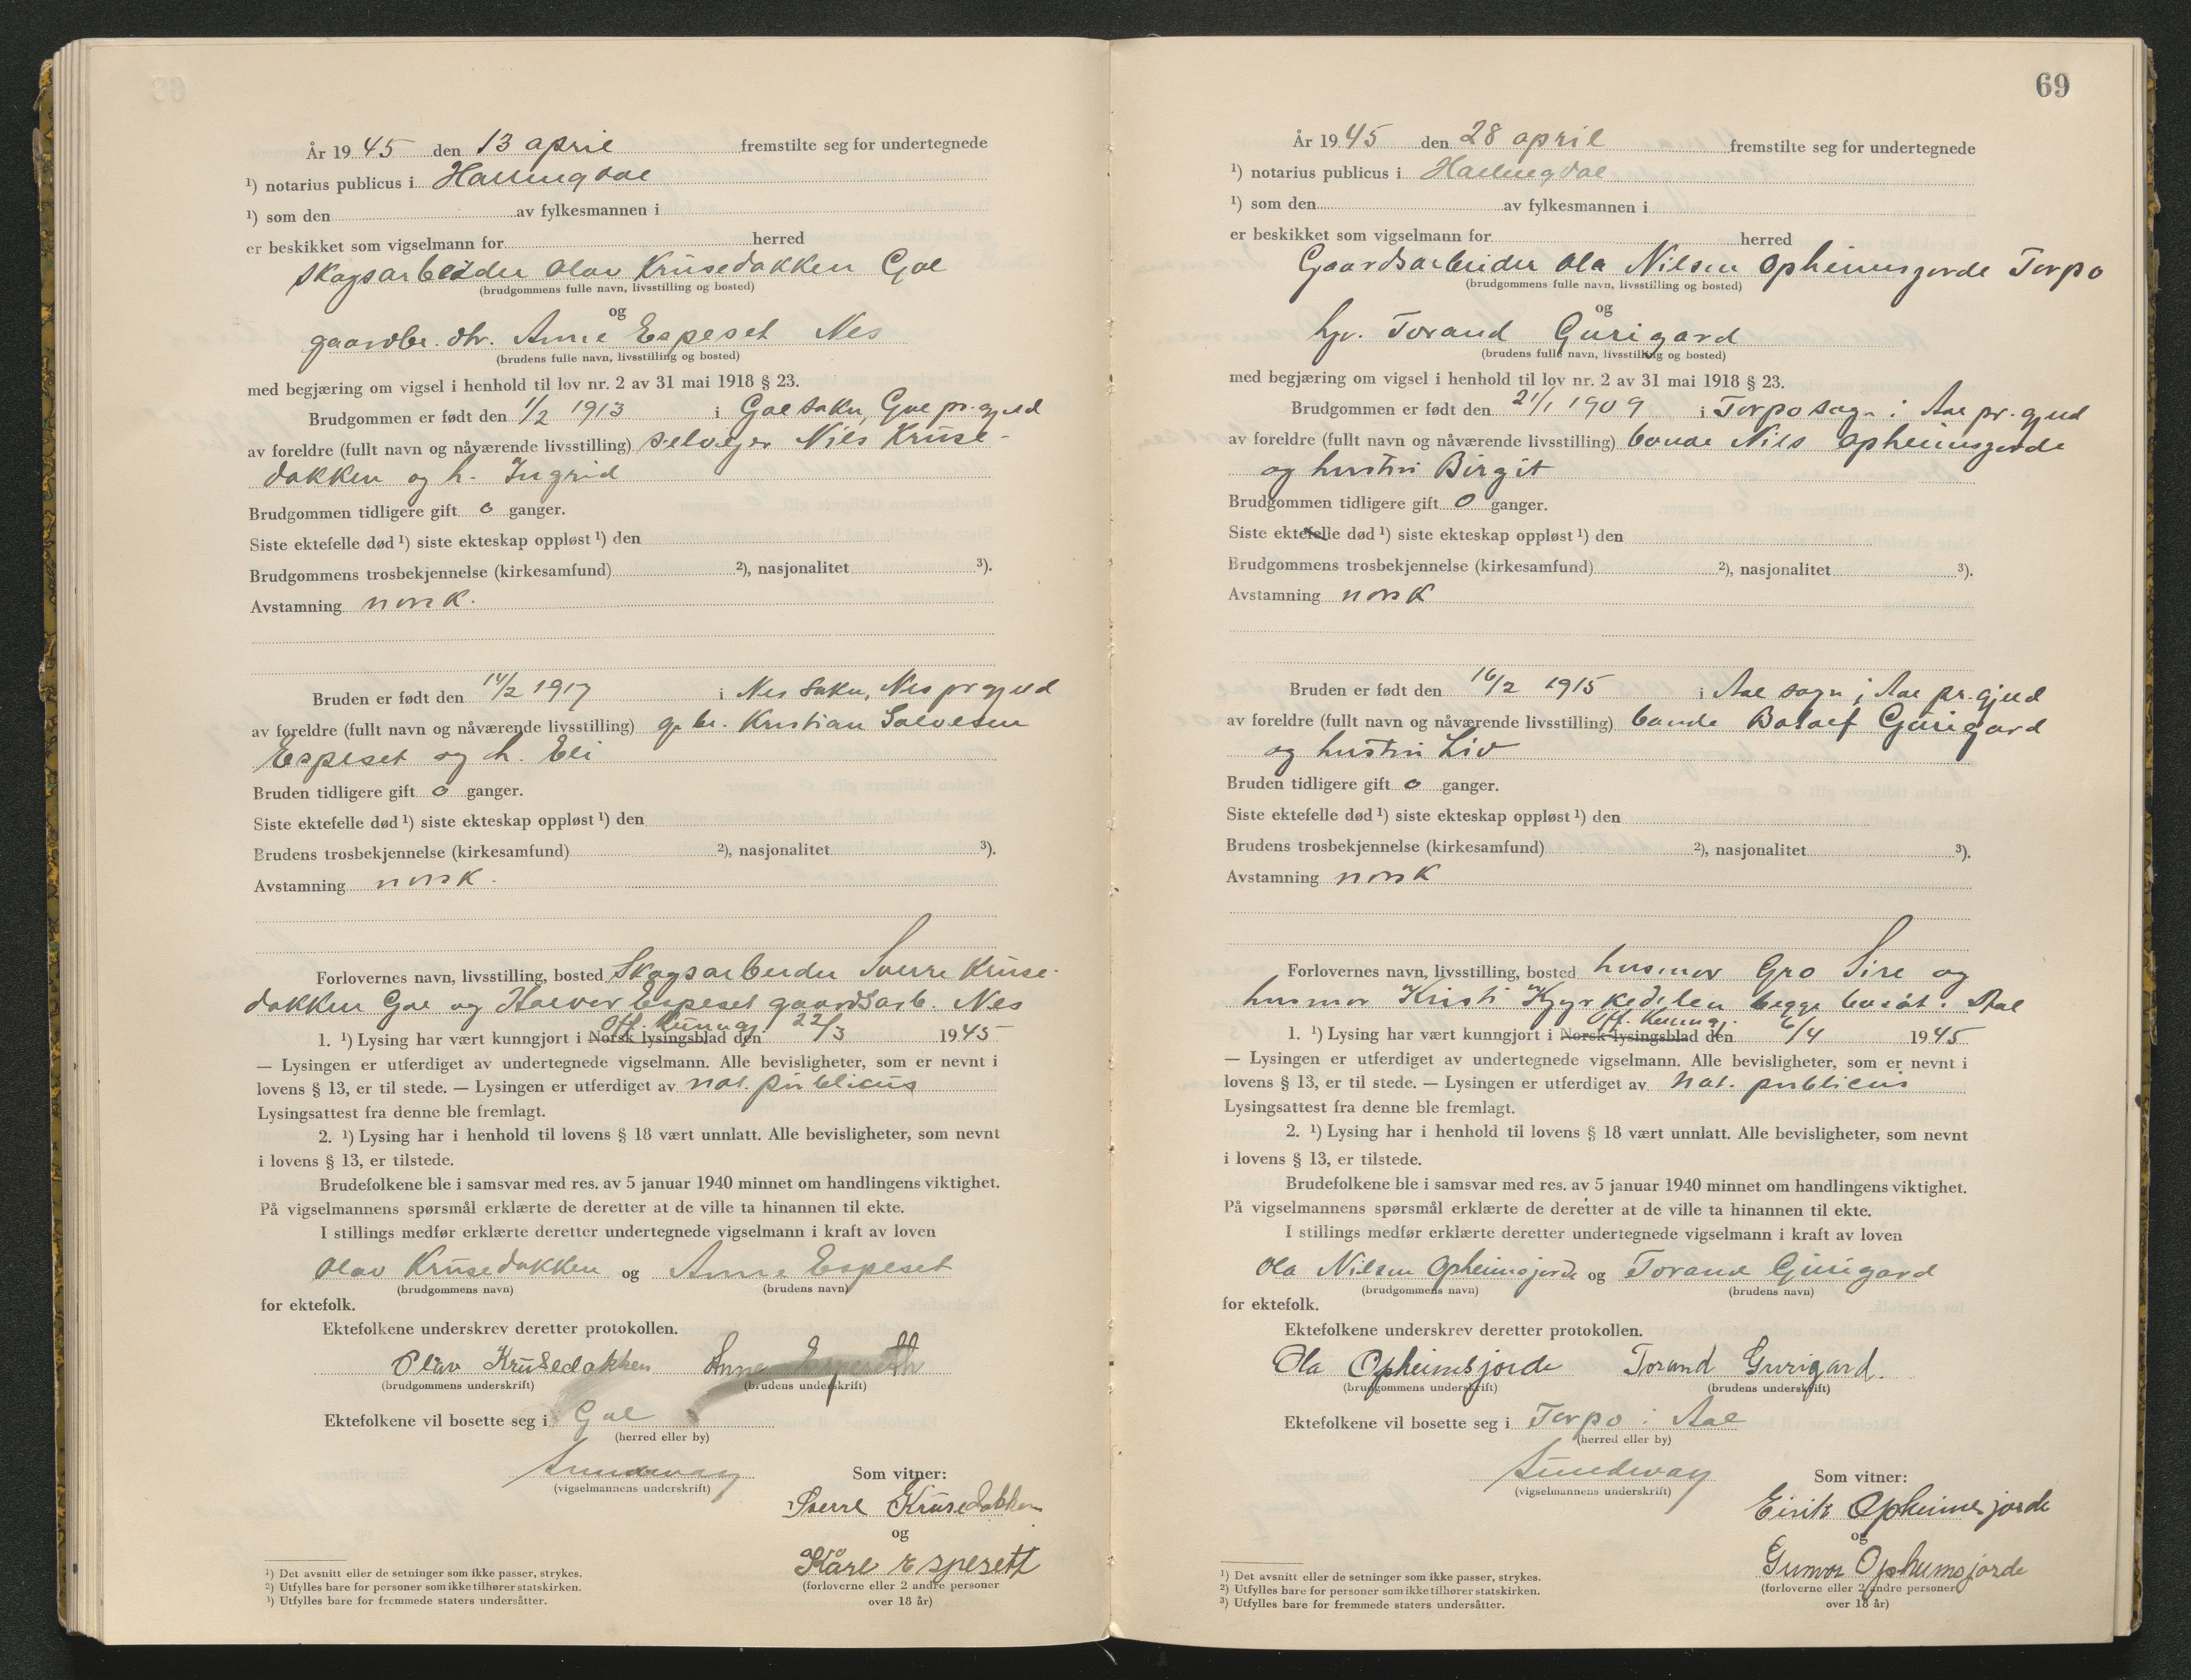 År 1945 den 13 april fremstilte seg for undertegnede
¹) notarius publicus i Hallingdal
¹) som den av fylkesmannen i
er beskikket som vigselmann for herred
Skogsarbeider Olav Krusedokken Gol
(brudgommens fulle navn, livsstilling og bosted)
og
gaardbr. dtr. Anne Espeset Nes
(brudens fulle navn, livsstilling og bosted)
med begjæring om vigsel i henhold til lov nr. 2 av 31 mai 1918 § 23.
Brudgommen er født den 1/2 1913 i Gol sokn, Gol pr.gjeld
av foreldre (fullt navn og nåværende livsstilling) selveier Nils Kruse-
dokken og h. Ingrid
Brudgommen tidligere gift 0 ganger.
Siste ektefelle død ¹) siste ekteskap oppløst ¹) den
Brudgommens trosbekjennelse (kirkesamfund) ²), nasjonalitet ³).
Avstamning norsk.
Bruden er født den 14/2 1917 i Nes sokn, Nes pr gjeld
av foreldre (fullt navn og nåværende livsstilling) g.br. Kristian Solvesen
Espeset og h. Eli
Bruden tidligere gift 0 ganger.
Siste ektefelle død ¹) siste ekteskap oppløst ¹) den
Brudens trosbekjennelse (kirkesamfund) ²), nasjonalitet ³).
Avstamning norsk.
Forlovernes navn, livsstilling, bosted Skogsarbeider Sverre Kruse-
dokken Gol og Halvor Espeset gaardsarb. Nes
Off. Kunngj.
1. ¹) Lysing har vært kunngjort i Norsk lysingsblad den 22/3 1945
— Lysingen er utferdiget av undertegnede vigselmann. Alle bevisligheter, som er nevnt i
lovens § 13, er til stede. — Lysingen er utferdiget av not. publicus
Lysingsattest fra denne ble fremlagt.
2. ¹) Lysing har i henhold til lovens § 18 vært unnlatt. Alle bevisligheter, som nevnt
i lovens § 13, er tilstede.
Brudefolkene ble i samsvar med res. av 5 januar 1940 minnet om handlingens viktighet.
På vigselmannens spørsmål erklærte de deretter at de ville ta hinannen til ekte.
I stillings medfør erklærte deretter undertegnede vigselmann i kraft av loven
Olav Krusedokken og Anne Espeset
(brudgommens navn) (brudens navn)
for ektefolk.
Ektefolkene underskrev deretter protokollen.
Olav Krusedokken Anne Espeseth
(brudgommens underskrift) (brudens underskrift)
Ektefolkene vil bosette seg i Gol
(herred eller by)
Som vitner:
(vigselmannens underskrift)
Sverre Krusedokken
og
Kåre Espesett
(forloverne eller 2 andre personer
over 18 år)
¹) Det avsnitt eller de setninger som ikke passer, strykes.
²) Utfylles bare for personer som ikke tilhører statskirken.
³) Utfylles bare for fremmede staters undersåtter.
69
År 1945 den 28 april fremstilte seg for undertegnede
¹) notarius publicus i Hallingdal
¹) som den av fylkesmannen i
er beskikket som vigselmann for herred
Gaardsarbeider Ola Nilsen Opheimsjorde Torpo
(brudgommens fulle navn, livsstilling og bosted)
og
hjv. Torand Gurigard
(brudens fulle navn, livsstilling og bosted)
med begjæring om vigsel i henhold til lov nr. 2 av 31 mai 1918 § 23.
Brudgommen er født den 21/1 1909 i Torpo sogn i Aal pr.gjeld
av foreldre (fullt navn og nåværende livsstilling) bonde Nils Opheimsjorde
og hustru Birgit
Brudgommen tidligere gift 0 ganger.
Siste ektefelle død ¹) siste ekteskap oppløst ¹) den
Brudgommens trosbekjennelse (kirkesamfund) ²), nasjonalitet ³).
Avstamning norsk
Bruden er født den 16/2 1915 i Aal sogn i Aal pr.gjeld
av foreldre (fullt navn og nåværende livsstilling) bonde Botolf Gurigard
og hustru Liv
Bruden tidligere gift 0 ganger.
Siste ektefelle død ¹) siste ekteskap oppløst ¹) den
Brudens trosbekjennelse (kirkesamfund) ²), nasjonalitet ³).
Avstamning norsk
Forlovernes navn, livsstilling, bosted husmor Gro Sire og
husmor Kristi Kyrkedelen begge bosat i Aal
Off. Kunngj.
1. ¹) Lysing har vært kunngjort i Norsk lysingsblad den 6/4 1945
— Lysingen er utferdiget av undertegnede vigselmann. Alle bevisligheter, som er nevnt i
lovens § 13, er til stede. — Lysingen er utferdiget av not. publicus
Lysingsattest fra denne ble fremlagt.
2. ¹) Lysing har i henhold til lovens § 18 vært unnlatt. Alle bevisligheter, som nevnt
i lovens § 13, er tilstede.
Brudefolkene ble i samsvar med res. av 5 januar 1940 minnet om handlingens viktighet.
På vigselmannens spørsmål erklærte de deretter at de ville ta hinannen til ekte.
I stillings medfør erklærte deretter undertegnede vigselmann i kraft av loven
Ola Nilsen Opheimsjorde og Torand Gurigard
(brudgommens navn) (brudens navn)
for ektefolk.
Ektefolkene underskrev deretter protokollen.
Ola Opheimsjorde Torand Gurigard.
(brudgommens underskrift) (brudens underskrift)
Ektefolkene vil bosette seg i Torpo i Aal
(herred eller by)
Som vitner:
(vigselmannens underskrift)
Eirik Opheimsjorde
og
Gunvor Opheimsjorde
(forloverne eller 2 andre personer
over 18 år)
¹) Det avsnitt eller de setninger som ikke passer, strykes.
²) Utfylles bare for personer som ikke tilhører statskirken.
³) Utfylles bare for fremmede staters undersåtter.